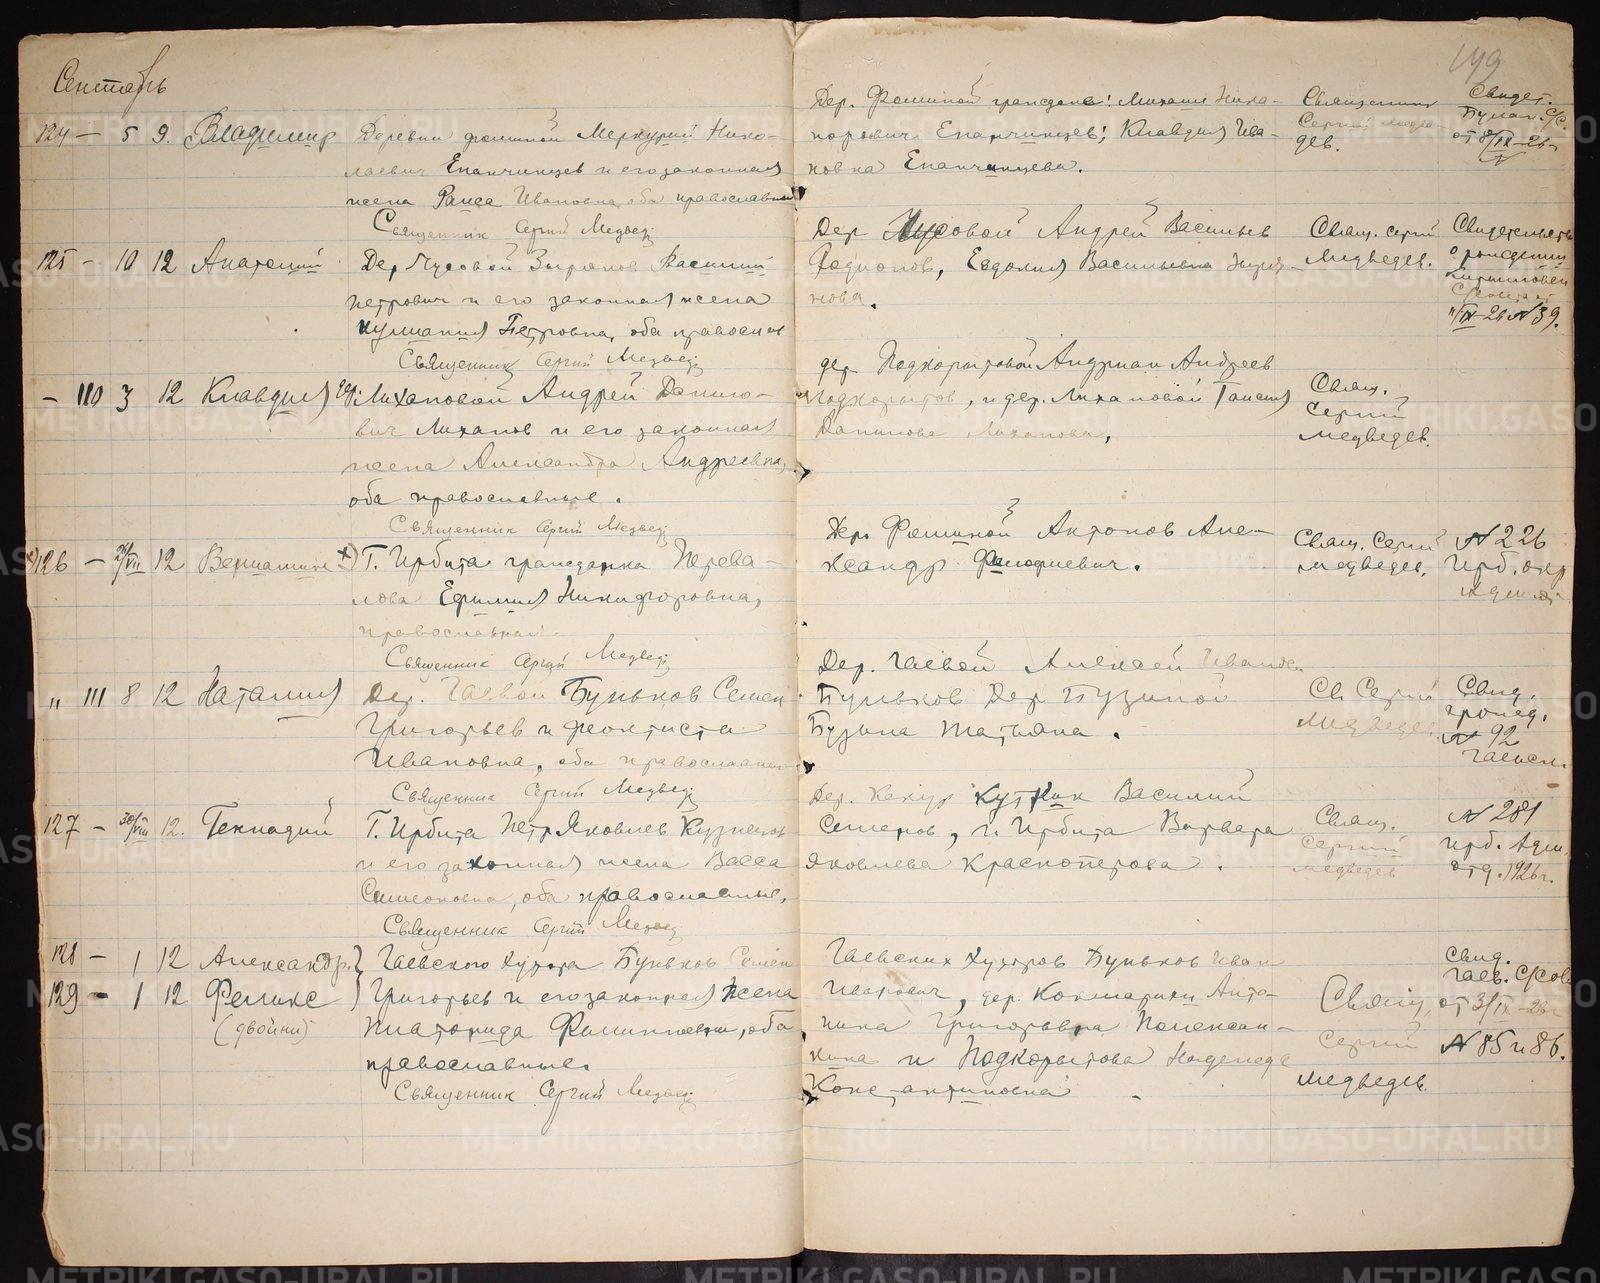 Сентябрь
149
124 — 5 9. Владимир Деревни Фоминой Меркурий Нико-
лаевич Епанчинцев и его законная
жена Раиса Ивановна, оба православные
Священник Сергий Медвед
Дер. Фоминой граждане: Михаил Ника-
норович Епанчинцев; Клавдия Ива-
новна Епанчинцева.
Священник
Сергий Медве-
дев.
Свидет.
от 8/IX-26
125 — 10 12 Анатолий Дер. Чусовой Зырянов Василий
Петрович и его законная жена
Иулиания Петровна, оба православ
Священник Сергий Медвед
Дер Чусовой Андрей Васильев
Родионов, Евдокия Васильевна Зыря-
нова.
Свящ. Сергий
Медведев.
Свидетельство
о рождении
11/IX-26 N 39.
— 110 3 12 Клавдия Дер. Лихановой Андрей Данило-
вич Лиханов и его законная
жена Александра Андреевна,
оба православные.
Священник Сергий Медвед
дер Подкорытовой Андриан Андреев
Подкорытов, и дер. Лихановой Таисия
Данилова Лиханова.
Свящ.
Сергий
Медведев.
126 — 12 Вениамин х) Г. Ирбита гражданка Перева-
лова Ефимия Никифоровна,
православная.
Священник Сергий Медвед
Дер. Фоминой Антонов Але-
ксандр
Свящ. Сергий
Медведев.
N 226
Ирб. окр
" 111 8 12 Наталия Дер. Гаевой Буньков Семен
Григорьев и Феоктиста
Ивановна, оба православные
Священник Сергий Медвед
Дер. Гаевой Алексей Иванов
Буньков Дер Бузиной
Бузина Татьяна.
Св. Сергий
Медведев.
Свид.
рожд.
N 92
Гаевск.
127 — 30/VIII 12. Геннадий Г. Ирбита Петр Яковлев Кузнецов
и его законная жена Васса
Симеоновна, оба православные.
Священник Сергий Медвед
Дер. Кекур Василий
Семенов, г. Ирбита Варвара
Яковлева Красноперова.
Свящ.
Сергий
Медведев
N 281
Ирб. Адм.
отд. 1926 г.
128 — 1 12 Александр } Гаевского хутора Буньков Семен
129 — 1 12 Феликс ) Григорьев и его законная жена
(двойни) Платонида Филипповна, оба
православные.
Священник Сергий Медвед
Гаевских хуторов Буньков Иван
Иванович, дер. Кокшарихи Анто-
нина Григорьевна
и Подкорытова Надежда
Константиновна
Свящ.
Сергий
Медведев.
Свид.
Гаев. С/сов
от 3/IX-26
N 85 и 86.
METRIKI.GASO-URAL.RU